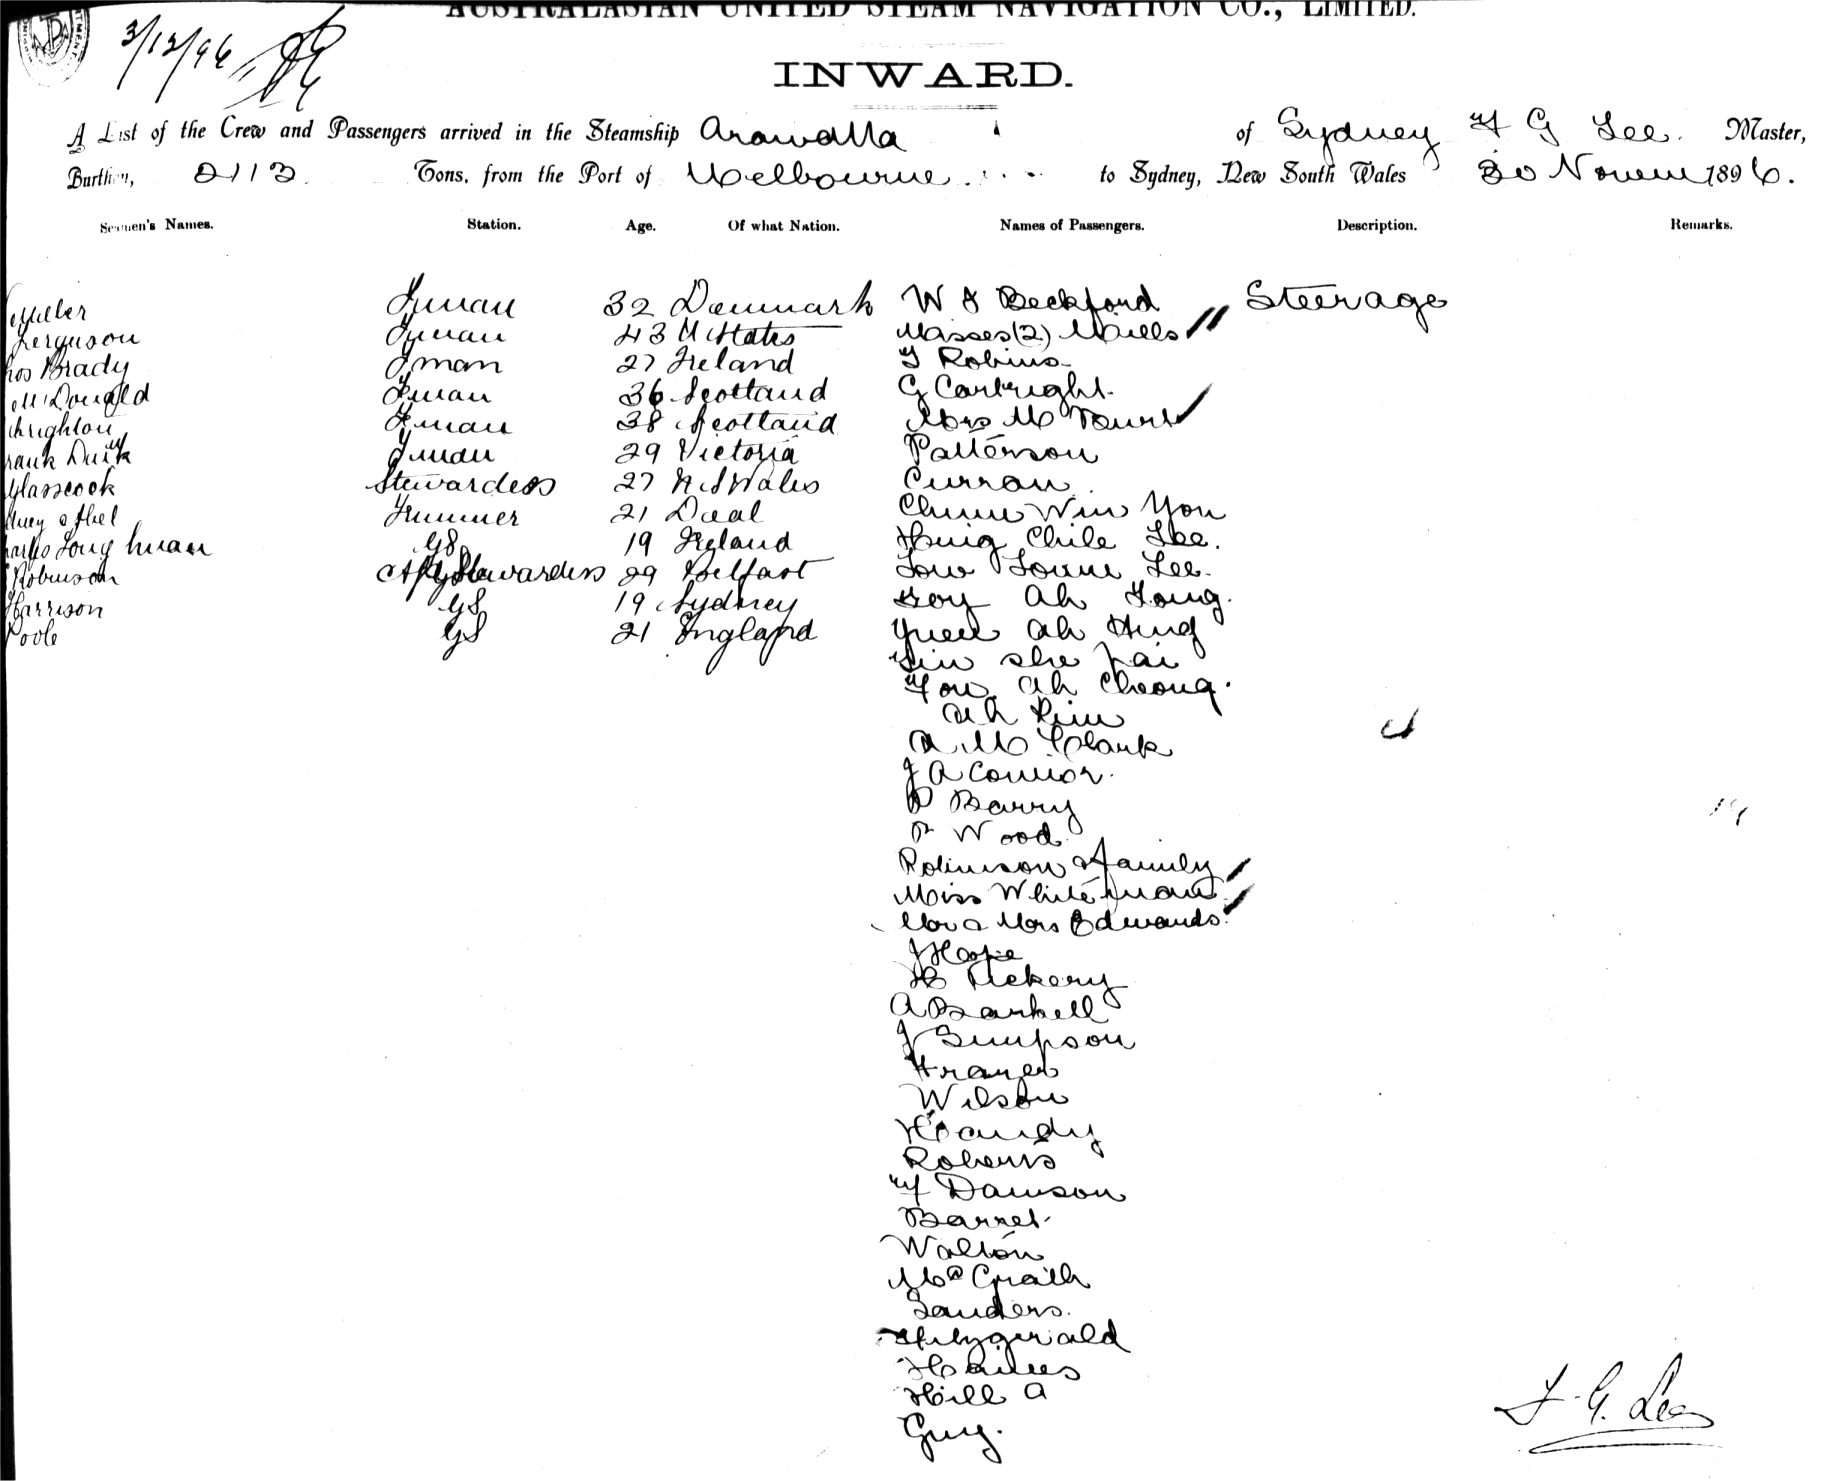 AUSTRALASIAN UNITED STEAM NAVIGATION CO., LIMITED.
3/12/96
INWARD.
A List of the Crew and Passengers arrived in the Steamship Arawatta of Sydney F G Lee. Master,
Burthen, 2113 Tons, from the Port of Melbourne to Sydney, New South Wales 30 Novem 1896.
Seamen's Names. Station. Age. Of what Nation. Names of Passengers. Description. Remarks.
Miller Fman 32 Denmark W J Beckford Steerage
Ferguson Fman 43 U States Misses (2) Mills
hos Brady Fman 27 Ireland F Robins
McDonald Fman 36 Scotland G Cartright.
chrighton Fman 38 Scotland Mrs M
rank Fman 29 Victoria Patterson
Glasscock Stewardess 27 N.S Wales Curran
Trimmer 21 Deal Win You
GS 19 Ireland Chile Lee.
Robinson Stewardess 29 Belfast Low Lee.
Harrison GS 19 Sydney Ah
Poole GS 21 England Yuen Ah Hing
she
You Ah Cheong.
Ah Kim
A M Clark
J A Connor.
P Barry
Wood
Robinson & family
Miss Whiteman
Mr & Mrs Edwards.
J Hope
H Vickery
A Barkell
J Simpson
Frazer
Wilson
Handy
Roberts
F Dawson
Barret
Walton
McGrath
Sanders.
Fitzgerald
Haines
Hill A
Guy.
F. G. Lee